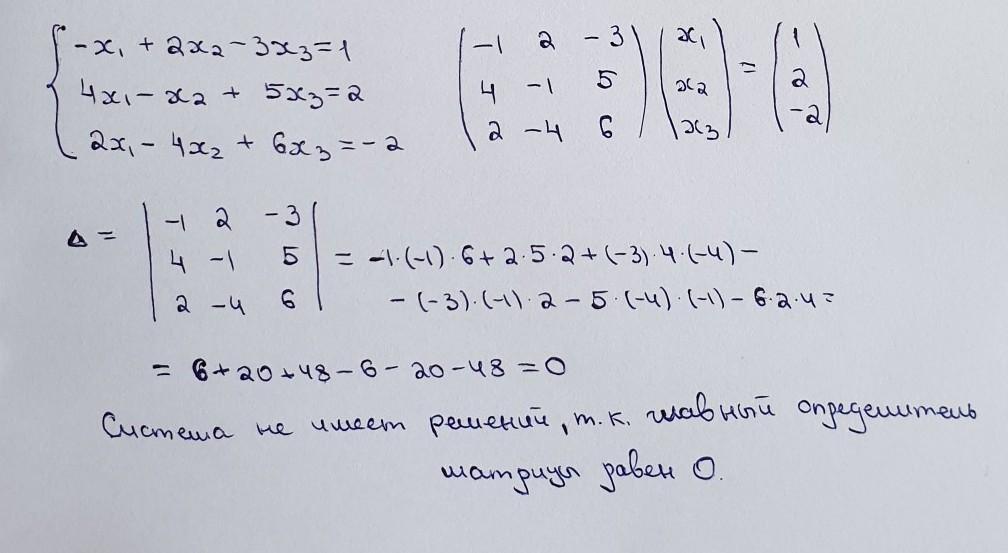 -x₁ + 2x₂ - 3x₃ = 1
4x₁ - x₂ + 5x₃ = 2
2x₁ - 4x₂ + 6x₃ = -2
(-1 2 -3) (x₁) = (1)
(4 -1 5) (x₂) (2)
(2 -4 6) (x₃) (-2)
Δ = | -1 2 -3 |
| 4 -1 5 | = -1·(-1)·6 + 2·5·2 + (-3)·4·(-4) -
| 2 -4 6 | - (-3)·(-1)·2 - 5·(-4)·(-1) - 6·2·4 =
= 6 + 20 + 48 - 6 - 20 - 48 = 0
Система не имеет решений, т.к. главный определитель
матрицы равен 0.